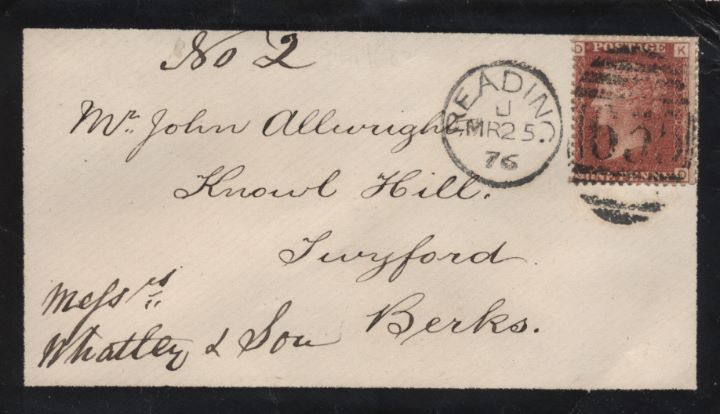 No 2
Mr. John Allwright,
Knowl Hill.
Twyford.
Berks.
Messrs
Whatley & Son
READING
U
MR25
76
D K
POSTAGE
ONE PENNY
D